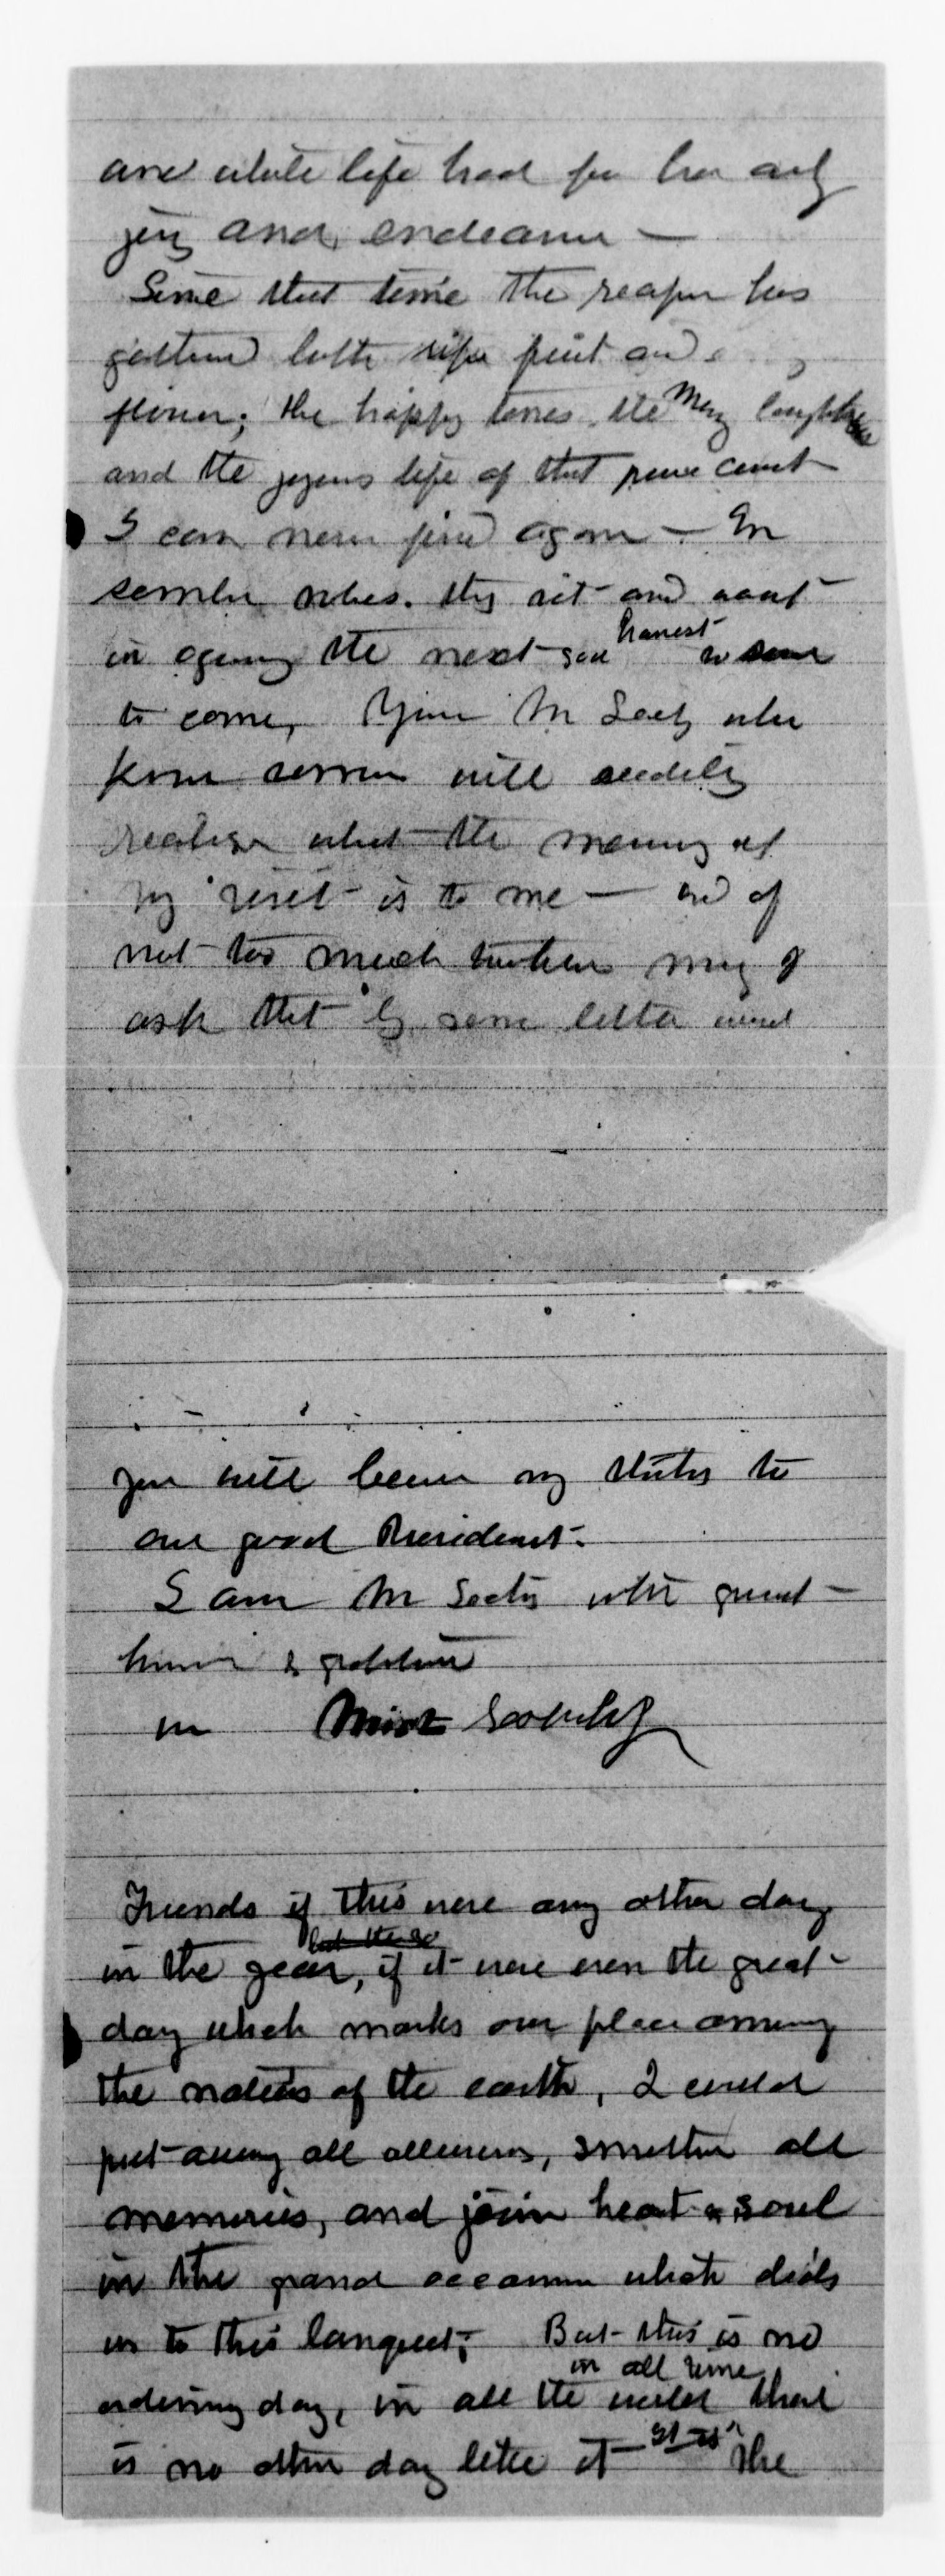 and while life had for her only
joy and endeavor —
Since that time the reaper has
gathered both ripe fruit and
flower; the happy tones, the merry laughter
and the joyous life of that pure court
I can never find again — In
somber robes they sit and wait
in agony the next sad harvest
to come, You Mr Secty who
know sorrow will readily
realize what the memory of
my visit is to me — and if
not too much trouble may I
ask that by some letter
you will my thanks to
our good President.
I am Mr Secty with great
honor & gratitude
Friends if this were any other day
in the year, if it were even the great
day which marks our place among
the nations of the earth, I could
put away all allusions, smother all
memories, and join heart & soul
in the grand occasion which
us to this banquet; But this is no
ordinary day, in all the world in all time there
is no other day like it the